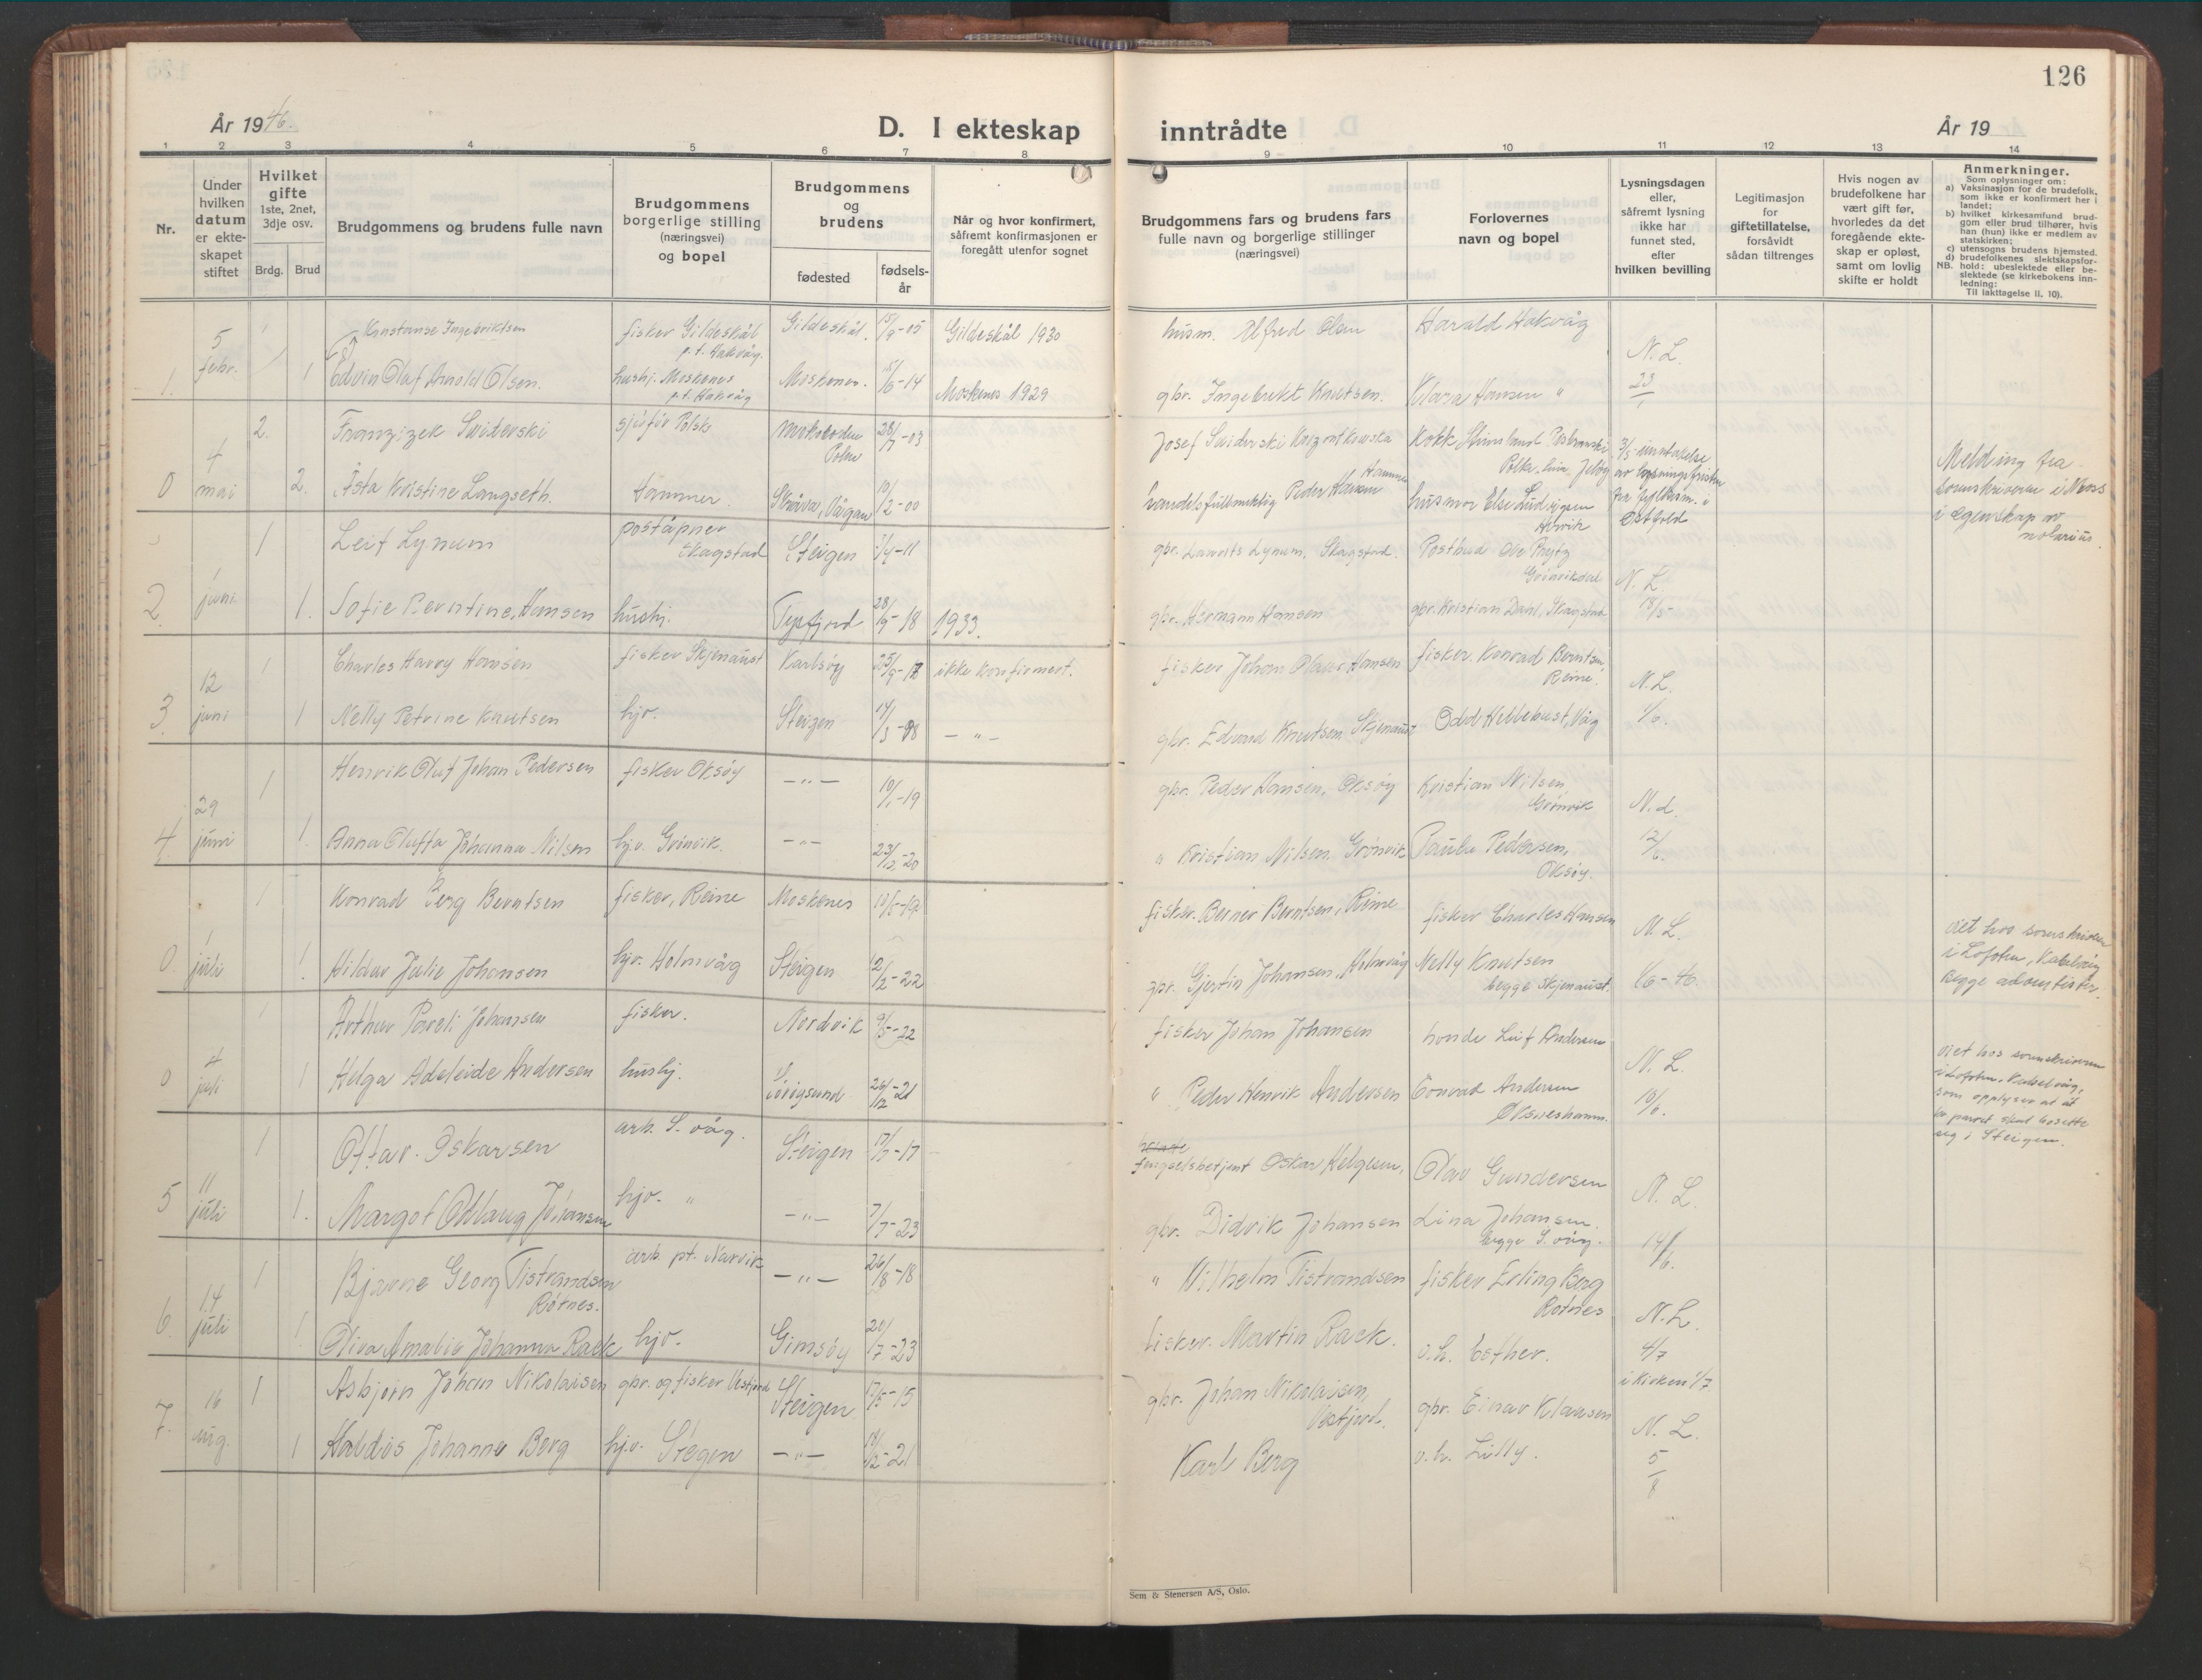 126
År 1946.
D. I ekteskap inntrådte
År 19
1 2 3 4 5 6 7 8 9 10 11 12 13 14
Nr.
Under
hvilken
datum
er ekte-
skapet
stiftet
Hvilket
gifte
1ste, 2net,
3dje osv.
Brdg. Brud
Brudgommens og brudens fulle navn
Brudgommens
borgerlige stilling
(næringsvei)
og bopel
Brudgommens
og
brudens
fødested
fødsels-
år
Når og hvor konfirmert,
såfremt konfirmasjonen er
foregått utenfor sognet
Brudgommens fars og brudens fars
fulle navn og borgerlige stillinger
(næringsvei)
Forlovernes
navn og bopel
Lysningsdagen
eller,
såfremt lysning
ikke har
funnet sted,
efter
hvilken bevilling
Legitimasjon
for
giftetillatelse,
forsåvidt
sådan tiltrenges
Hvis nogen av
brudefolkene har
vært gift før,
hvorledes da det
foregående ekte-
skap er opløst,
samt om lovlig
skifte er holdt
Anmerkninger.
Som oplysninger om:
a) Vaksinasjon for de brudefolk,
som ikke er konfirmert her i
landet;
b) hvilket kirkesamfund brud-
gom eller brud tilhører, hvis
han (hun) ikke er medlem av
statskirken;
c) utensogns brudens hjemsted.
d) brudefolkenes slektskapsfor-
NB. hold: ubeslektede eller be-
slektede (se kirkebokens inn-
ledning:
Til iakttagelse II, 10).
5 1 Konstanse Ingebriktsen fisker Gildeskål Gildeskål. 15/9-05 Gildeskål 1930 husm. Alfred Olsen Harald Hakvåg
febr. p.t. Hakvåg. N. L.
1. 1 Edvin Olaf Arnold Olsen. hushj. Moskenes Moskenes. 15/6-14 Moskenes 1929 gbr. Ingebrikt Knutsen. Klara Hansen " 23/1
p.t. Hakvåg
4 2. Franzizek Swiderski sjåfør Polsk 28/7-03 Josef Swiderski Kokk
Polen
0 mai 2. Åsta Kristine Langseth. Hammer Skråva, Vågan 10/2-00 handelsfullmektig Peder Hansen husmor Else Ludvigsen
Østfold
Melding fra
sorenskriveren i Moss
i egenskap av
notarius.
1 Leif Lynum poståpner Steigen 1/4-11 gbr. Laurits Lynum, Skagstad. Postbud Ole Prytz
Skagstad Grønvikdal N. L.
2. 1 juni 1. Sofie Berntine Hansen hushj. Tysfjord 28/9-18 1933. gbr. Hermann Hansen gbr. Kristian Dahl, Skagstad 18/5
12 1 Charles Harry Hansen fisker Skjenaust Karlsøy 25/9-17 ikke konfirmert. fisker Johan Olaus Hansen fisker. Konrad Berntsen,
Reine. N. L.
3. juni 1 Nelly Petrine Knutsen hjv. Steigen 14/3-08 — " — gbr. Edvard Knutsen Skjenaust Odd Hellebust, Våg 1/6.
29 1 Henrik Oluf Johan Pedersen fisker Oksøy — " — 10/1-19 gbr. Peder Hansen, Oksøy Kristian Nilsen,
Grønvik N. L.
4. juni 1. Anna Oluffa Johanna Nilsen hjv. Grønvik. — " — 23/12-20 " Kristian Nilsen Grønvik Paula Pedersen, 12/6.
Oksøy.
1 Konrad Berg Berntsen fisker, Reine Moskenes fisker. Berner Berntsen, Reine fisker Charles Hansen N. L.
0. 1 juli 1. Hildur Julie Johansen hjv. Holmvåg Steigen 12/2-22 gbr. Gjertin Johansen, Holmvåg Nelly Knutsen 1/6-46.
begge Skjenaust.
viet hos sorenskriver
i Lofoten, Kabelvåg
Begge adventister.
1 Arthur Pareli Johansen fisker. Nordvik 9/5-22 fisker Johan Johansen bonde Leif Andersen
0 4 juli 1 Helga Adeleide Andersen hushj. 26/12-21 " Peder Henrik Andersen Konrad Andersen N. L.
Oksneshamn. 18/6.
viet hos sorenskriveren
i Lofoten, Kabelvåg,
som opplyser at
paret skal bosette
seg i Steigen.
1 Ottar Oskarsen arb. S. våg. Steigen 17/7-17 fengselsbetjent Oskar Helgesen, Olav Gundersen
N. L.
5 11 juli 1. Margot Oddlaug Johansen hjv. " — " — 7/7-23 gbr. Didrik Johansen Lina Johansen.
begge S. våg. 14/6.
1 Bjarne Georg Tistrandsen arb. pt. Narvik — " — 26/8-18 " Vilhelm Tistrandsen fisker Erling Berg
Rotnes. Rotnes N. L.
6. 14 juli 1. Oliva Amalie Johanna Rask hjv. Gimsøy 20/7-23 fisker. Martin Rask. v.h. Esther. 4/7
i kirken 1/7.
16 1 Asbjørn Johan Nikolaisen gbr. og fisker Vestfjord Steigen 17/5-15 gbr. Johan Nikolaisen, gbr. Einar Klausen
Vestfjord. N. L.
7. aug. 1 Haldis Johanna Berg hjv. Stegen — " — 18/2-21 Karl Berg v.h. Lilly. 5/8
Sem & Stenersen A/S, Oslo.